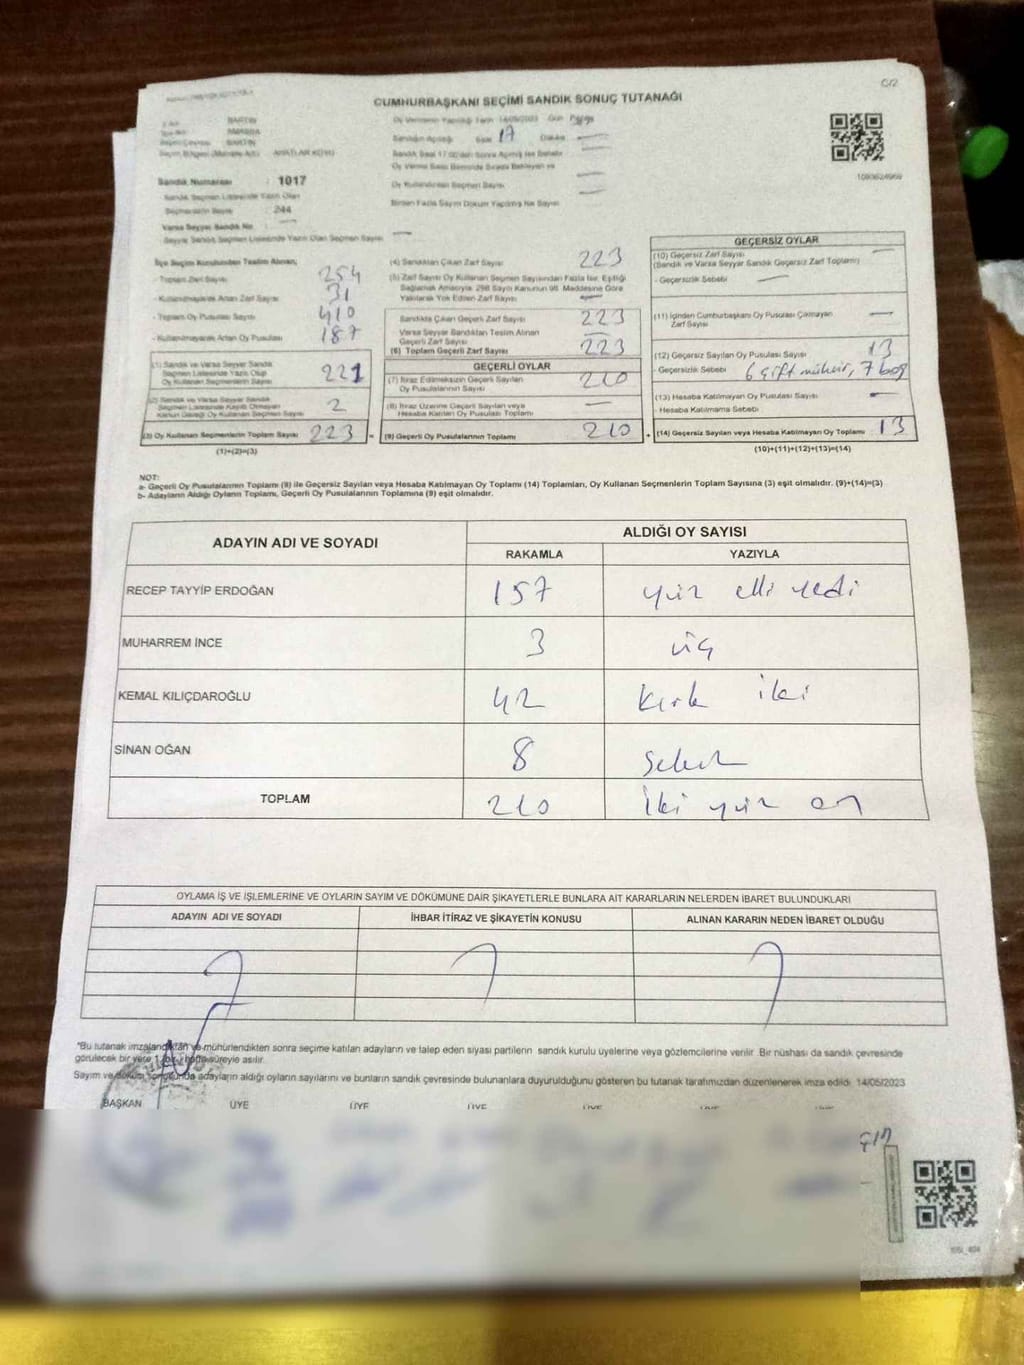 C/2
CUMHURBAŞKANI SEÇİMİ SANDIK SONUÇ TUTANAĞI
BARTIN
BARTIN
Sandık Numarası : 1017
Sandık Seçmen Listesinde Yazılı Olan
Seçmenlerin Sayısı : 244
Varsa Seyyar Sandık No
Seyyar Sandık Seçmen Listesinde Yazılı Olan Seçmen Sayısı
Oy Vermenin Yapıldığı Tarih 14/05/2023 Gün Pazar
Sandığın Açılışı Saat 17 Dakika
Oy Kullandırılan Seçmen Sayısı
Birden Fazla Sayım Döküm Yapılmış İse Sayısı
İlçe Seçim Kurulundan Teslim Alınan;
- Toplam Zarf Sayısı 254
- Kullanılmayarak Artan Zarf Sayısı 31
- Toplam Oy Pusulası Sayısı 410
- Kullanılmayarak Artan Oy Pusulası 187
(1) Sandık ve Varsa Seyyar Sandık
Seçmen Listesinde Yazılı Olup
Oy Kullanan Seçmenlerin Sayısı 221
(2) Sandık ve Varsa Seyyar Sandık
Seçmen Listesinde Kayıtlı Olmayan
Kanun Gereği Oy Kullanan Seçmenlerin Sayısı 2
(3) Oy Kullanan Seçmenlerin Toplam Sayısı 223 =
(1)+(2)=(3)
(4) Sandıktan Çıkan Zarf Sayısı 223
(5) Zarf Sayısı Oy Kullanan Seçmen Sayısından Fazla İse, Eşitliği
Sağlamak Amacıyla; 298 Sayılı Kanunun 98. Maddesine Göre
Yakılarak Yok Edilen Zarf Sayısı
Sandıkta Çıkan Geçerli Zarf Sayısı 223
Varsa Seyyar Sandıktan Teslim Alınan
Geçerli Zarf Sayısı
(6) Toplam Geçerli Zarf Sayısı 223
GEÇERLİ OYLAR
(7) İtiraz Edilmeksizin Geçerli Sayılan
Oy Pusulalarının Sayısı 210
(8) İtiraz Üzerine Geçerli Sayılan veya
Hesaba Katılan Oy Pusulası Toplamı
(9) Geçerli Oy Pusulalarının Toplamı 210 +
GEÇERSİZ OYLAR
(10) Geçersiz Zarf Sayısı
(Sandık ve Varsa Seyyar Sandık Geçersiz Zarf Toplamı)
- Geçersizlik Sebebi
(11) İçinden Cumhurbaşkanı Oy Pusulası Çıkmayan
Zarf Sayısı
(12) Geçersiz Sayılan Oy Pusulası Sayısı 13
- Geçersizlik Sebebi 6 çift mühür, 7 boş
(13) Hesaba Katılmayan Oy Pusulası Sayısı
- Hesaba Katılmama Sebebi
(14) Geçersiz Sayılan veya Hesaba Katılmayan Oy Toplamı 13
(10)+(11)+(12)+(13)=(14)
NOT:
a- Geçerli Oy Pusulalarının Toplamı (9) ile Geçersiz Sayılan veya Hesaba Katılmayan Oy Toplamı (14) Toplamları, Oy Kullanan Seçmenlerin Toplam Sayısına (3) eşit olmalıdır. (9)+(14)=(3)
b- Adayların Aldığı Oyların Toplamı, Geçerli Oy Pusulalarının Toplamına (9) eşit olmalıdır.
ADAYIN ADI VE SOYADI
ALDIĞI OY SAYISI
RAKAMLA YAZIYLA
RECEP TAYYİP ERDOĞAN 157 yüz elli yedi
MUHARREM İNCE 3 üç
KEMAL KILIÇDAROĞLU 42 kırk iki
SİNAN OĞAN 8 sekiz
TOPLAM 210 iki yüz on
OYLAMA İŞ VE İŞLEMLERİNE VE OYLARIN SAYIM VE DÖKÜMÜNE DAİR ŞİKAYETLERLE BUNLARA AİT KARARLARIN NELERDEN İBARET BULUNDUKLARI
ADAYIN ADI VE SOYADI İHBAR İTİRAZ VE ŞİKAYETİN KONUSU ALINAN KARARIN NEDEN İBARET OLDUĞU
*Bu tutanak imzalandıktan ve mühürlendikten sonra seçime katılan adayların ve talep eden siyasi partilerin sandık kurulu üyelerine veya gözlemcilerine verilir. Bir nüshası da sandık çevresinde
görülecek bir yere 1 bir hafta süreyle asılır.
Sayım ve döküm sonucunda adayların aldığı oyların sayılarını ve bunların sandık çevresinde bulunanlara duyurulduğunu gösteren bu tutanak tarafımızdan düzenlenerek imza edildi. 14/05/2023
BAŞKAN ÜYE ÜYE ÜYE ÜYE ÜYE